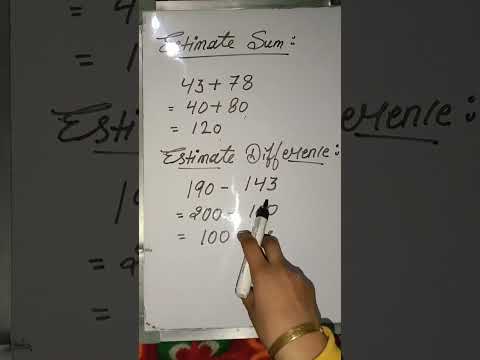 Estimate Sum:
43 + 78
= 40 + 80
= 120
Estimate Difference:
190 - 143
= 200 -
= 100